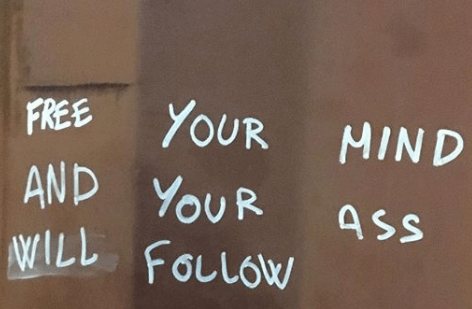 FREE YOUR MIND
AND YOUR ASS
WILL FOLLOW